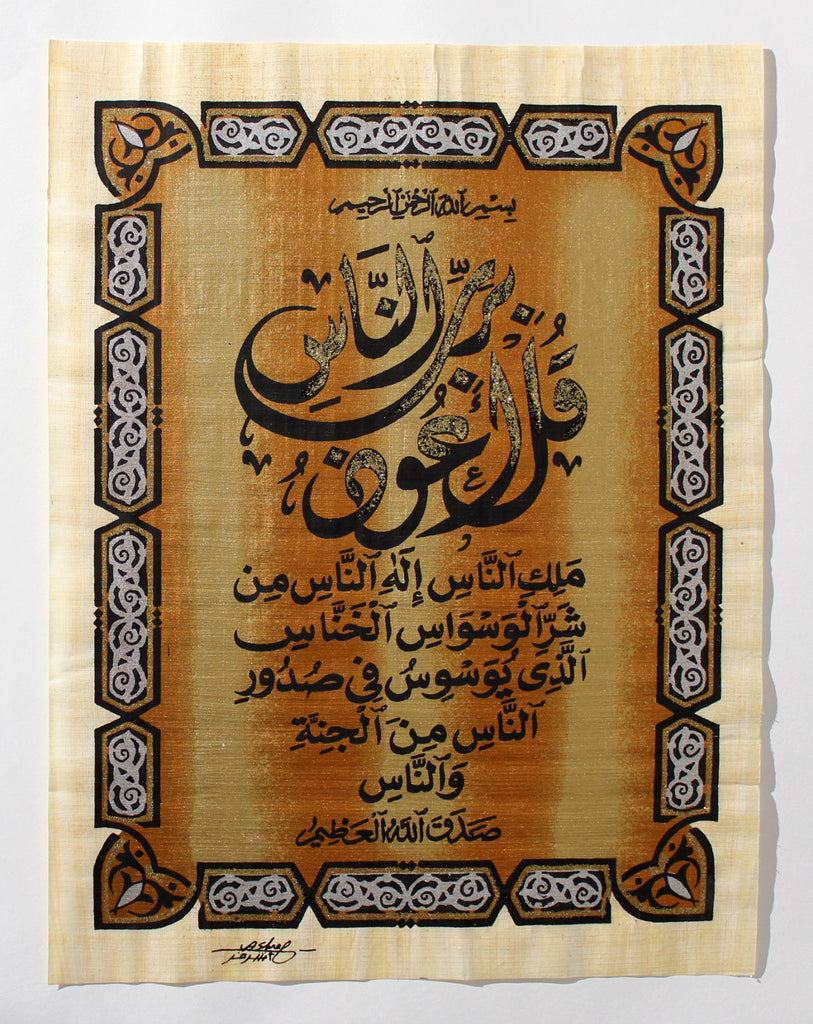 بِسْمِ ٱللهِ ٱلرَّحْمٰنِ ٱلرَّحِيمِ
قُلْ أَعُوذُ بِرَبِّ ٱلنَّاسِ
مَلِكِ ٱلنَّاسِ إِلَٰهِ ٱلنَّاسِ مِن
شَرِّ ٱلْوَسْوَاسِ ٱلْخَنَّاسِ
ٱلَّذِى يُوَسْوِسُ فِى صُدُورِ
ٱلنَّاسِ مِنَ ٱلْجِنَّةِ
وَٱلنَّاسِ
صَدَقَ ٱللهُ ٱلْعَظِيمُ